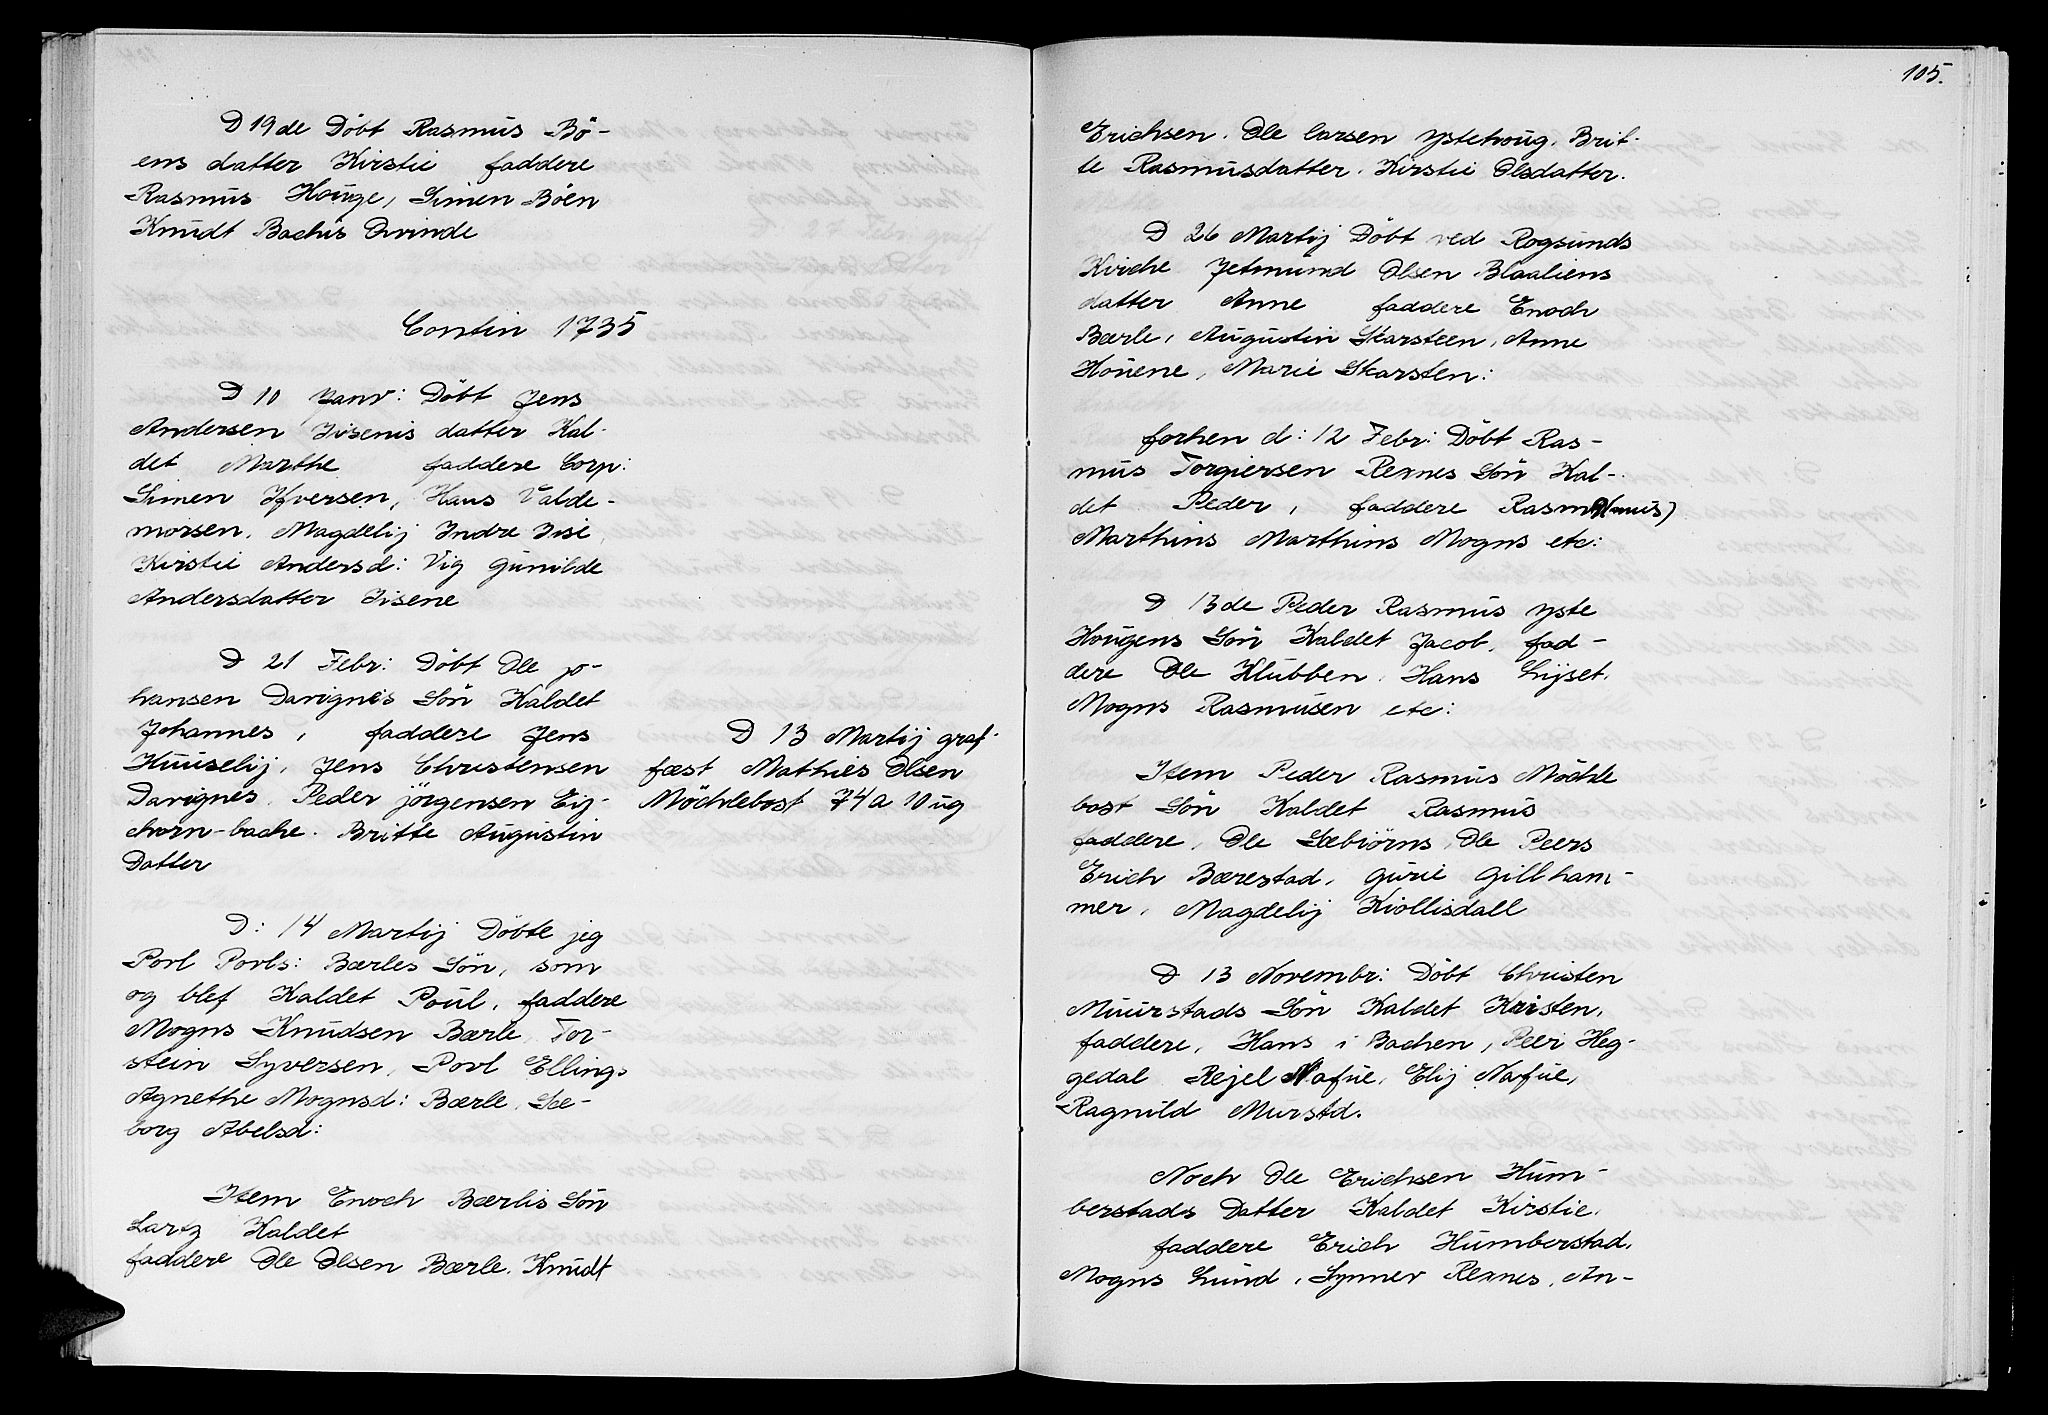 D 19de Döbt Rasmus Bö-
ens datter Kirstie faddere
Rasmus Houge, Simen Böen
Knudt Bachis Qvinde
Contin 1735
D 10 Janv: Döbt Jens
Andersen Jisenis datter Kal-
det Marthe faddere Corp:
Simen Ifversen, Hans Valde-
morsen. Magdelij Indre Jise
Kirstie Andersd: Vig Gunilde
Andersdatter Jisene
D 21 Febr: Döbt Ole jo-
hansen Davignes Sön Kaldet
Johannes, faddere Jens
Huuselij, Jens Christensen
Davignes. Peder jörgensen Eij-
chorn-bache. Britte Augustin
Datter
D: 14 Martij Döbte jeg
Povl Povls: Bærles Sön, som
og blef Kaldet Poul, faddere
Mogns Knudsen Bærle, Tor-
stein Syversen, Povl Ellings
Agnethe Mognsd: Bærle, Sæ-
borg Abelsd:
Item Enoch Bærlis Sön
Lartz Kaldet
faddere Ole Olsen Bærle. Knudt
D 13 Martij graf-
fæst Mathies Olsen
Möchlebost 74a 10ug
105.
Erichsen. Ole larsen ystehoug. Brit-
te Rasmusdatter. Kirstie Olsdatter.
D 26 Martij Döbt ved Rogsunds
Kirche Jetmund Olsen Blaaliens
datter Anne faddere Enoch
Bærle, Augustin Skarsteen, Anne
Houene, Marie Skarsten:
forhen d: 12 Febr: Döbt Ras-
mus Torgiersen Rexnes Sön Kal-
det Peder, faddere Rasm(mus)
Marthins Marthins Mogns etc:
D 13de Peder Rasmus yste
Hougens Sön Kaldet Jacob. fad-
dere Ole Klubben. Hans Lijset.
Mogns Rasmusen etc:
Item Peder Rasmus Möchle
bost Sön Kaldet Rasmus
faddere, Ole Sæbiörns, Ole Peers
Erich Bærestad, gurie gillham-
mer, Magdelij Kiöllisdall
D 13 Novembr: Döbt Christen
Muurstads Sön Kaldet Kristen.
faddere, Hans i Bachen, Peer Heg-
gedal Rejel Nafue, Elij Nafue,
Ragnild Murstd.
Noch Ole Erichsen Hum-
berstads Datter Kaldet Kirstie.
faddere Erich Humberstad.
Mogns Lund, Synner Rexnes, An-